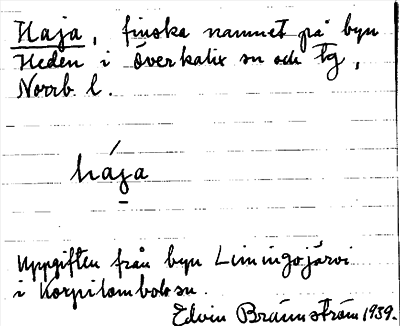 Haja, finska namnet på byn
Heden i Överkalix sn och tg,
Norrb l.
hája
Uppgiften från byn Limingojärvi
i Korpilombolo sn.
Edvin Brännström 1939.